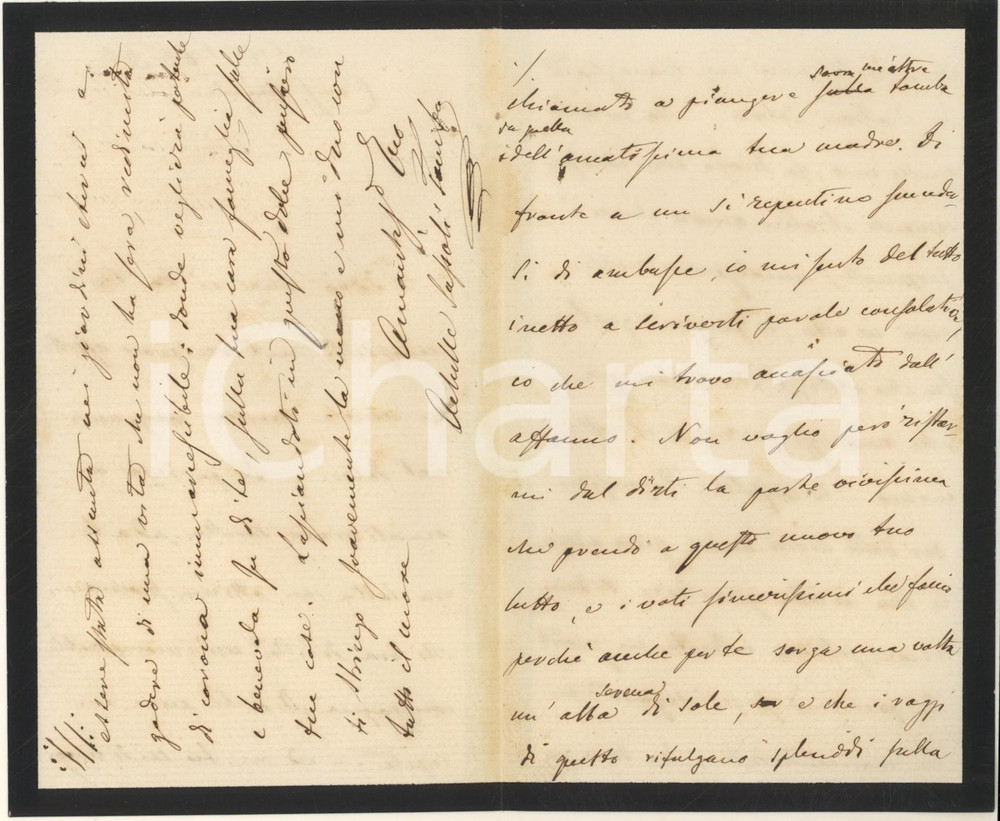 ./.
chiamato a piangere sulla tomba
sovra, mentre
da quella
dell'amatissima tua madre. Di
fronte a un sì repentino succeder-
si di ambasce, io mi sento del tutto
inetto a scriverti parole consolatrici,
io che mi trovo accasciato dall'
affanno. Non voglio però ristar-
mi dal dirti la parte vivissima
che prendo a questo nuovo tuo
lutto, e i voti sincerissimi che faccio
perchè anche per te sorga una volta
un'alba serena di sole, e che i raggi
di questo rifulgano splendidi sulla
://:
essere stata assunta nei giardini eterni a
godere di una vita che non ha sera, redimita
di corona immarcescibile; donde veglierà potente
e benevola su di te, sulla tua cara famiglia, sulle
tue cose. Lasciandoti in questo dolce pensiero
ti stringo soavemente la mano e mi dico con
tutto il cuore
Tuo
Amantissimo
Achille
iCharta